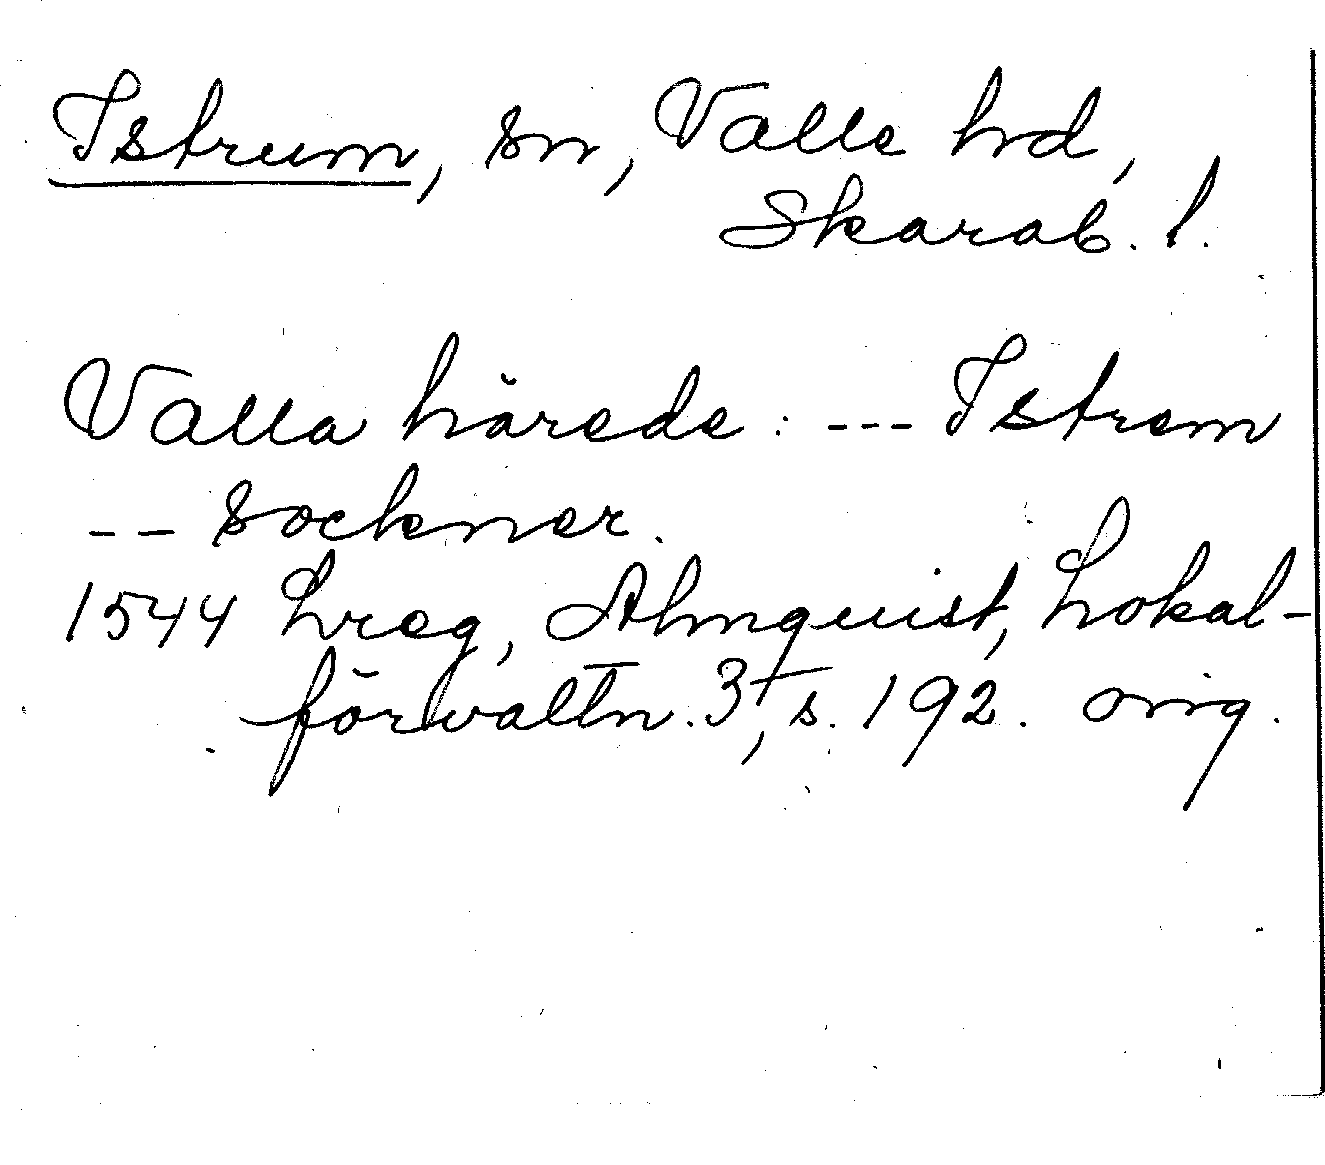 Istrum, sn, Valle hd,
Skarab. l.
Valla härede: --- Istrem
-- sockner.
1544 Lreg, Almquist, Lokal-
förvaltn. 3, s. 192. orig.